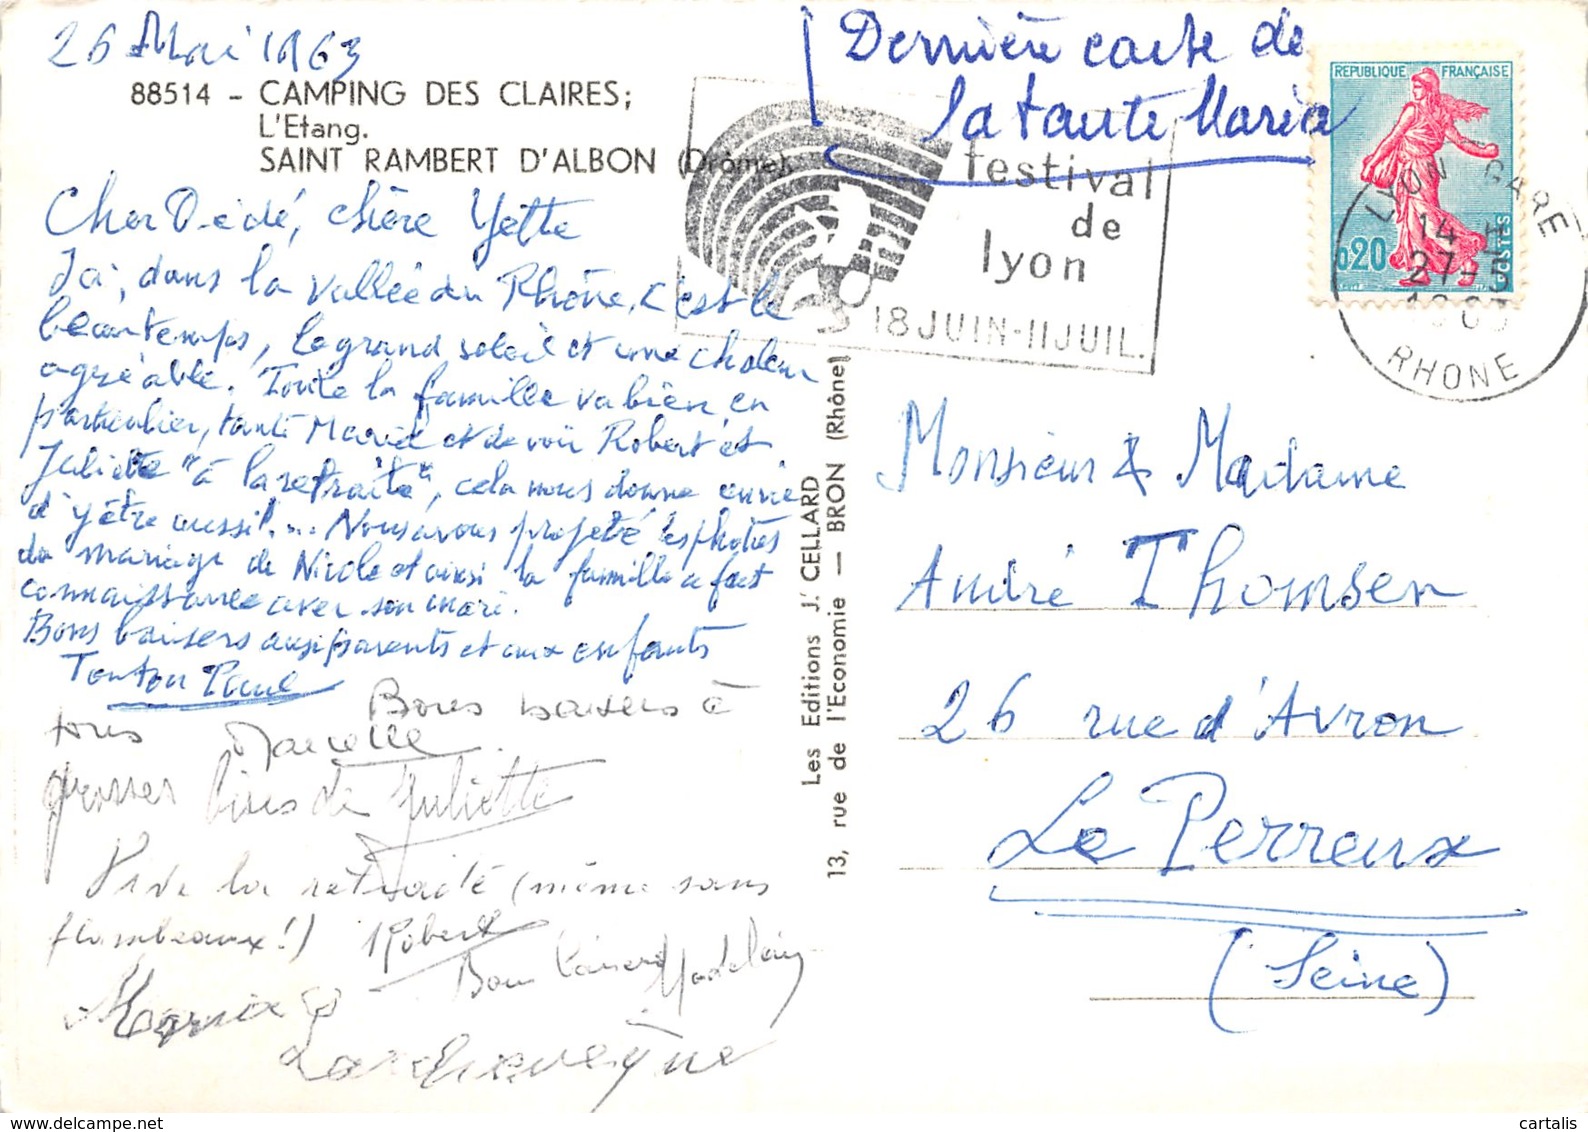 26 Mai 1963
88514 - CAMPING DES CLAIRES;
L'Etang.
SAINT RAMBERT D'ALBON (Drôme).
Cher Dédé, chère Yette
Ici, dans la vallée du Rhône, c'est le
beau temps, le grand soleil et une chaleur
agréable. Toute la famille va bien, en
particulier, tante Maria et de voir Robert et
Juliette "à la retraite", cela nous donne envie
d'y être aussi!... Nous avons projeté les photos
du mariage de Nicole et ainsi la famille a fait
connaissance avec son mari.
Bons baisers aux parents et aux enfants
Tonton Paul
Bons baisers à
tous Marcelle.
grosses bises de Juliette
Vive la retraite (même sans
flambeaux!) Robert
Bons baisers Madeleine
Maria
Larcheveque
Les Editions J. CELLARD
13, rue de l'Economie — BRON (Rhône)
Dernière carte de
la tante Maria
festival
de
lyon
18 JUIN-11 JUIL.
REPUBLIQUE FRANÇAISE
0,20
POSTES
LYON GARE
14 H
27-5
1963
RHONE
Monsieur & Madame
André Thomsen
26 rue d'Avron
Le Perreux
(Seine)
cartalis
www.delcampe.net